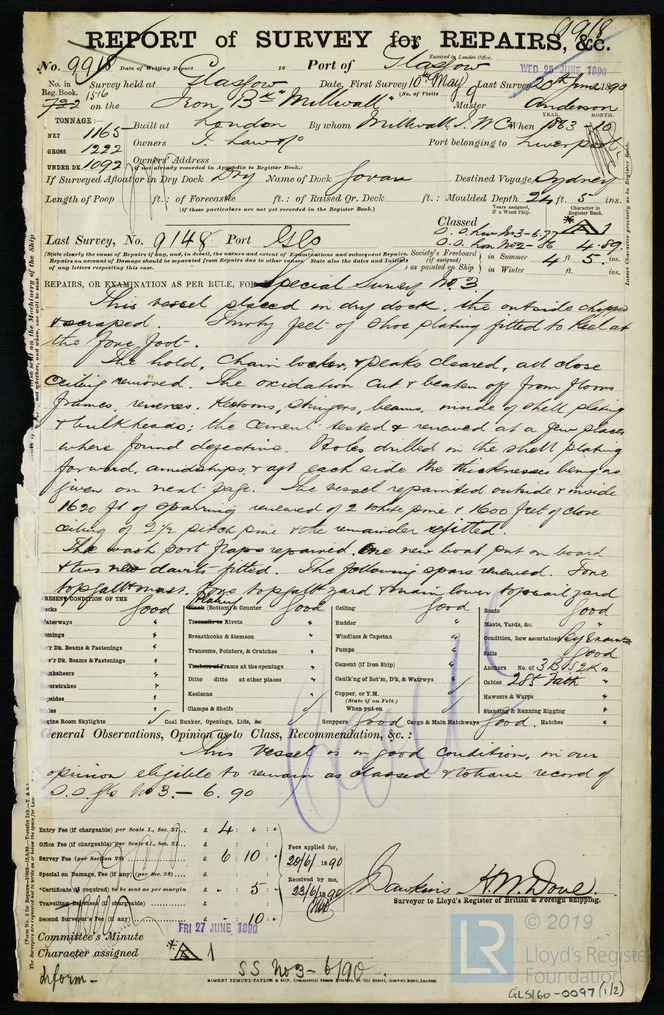 9918
REPORT of SURVEY for REPAIRS, &c.
No. 9918 Date of Writing Report is Port of Glasgow Received in London Office. WED. 25 JUNE 1890
No. in Reg. Book. 1516 722 Survey held at Glasgow Date, First Survey 10th May Last Survey 20th June 1890
(No. of Visits 9)
on the Iron Bk "Millwall" Master Anderson
TONNAGE:— YEAR. MONTH.
NET 1165 Built at London By whom Millwall I. W. C When 1863 10
GROSS 1222 Owners T. Law & Co Port belonging to Liverpool
UNDER DK. 1092 Owners' Address
(if not already recorded in Appendix to Register Book.)
If Surveyed Afloat or in Dry Dock Dry Name of Dock Govan Destined Voyage Sydney
Length of Poop ft.: of Forecastle ft.: of Raised Qr. Deck ft.: Moulded Depth 24 ft. 5 ins.
(if these particulars are not yet recorded in the Register Book.)
Years assigned, if a Wood Ship. Character in Register Book.
Classed * A 1
S.S. Liv No 3-6.77
Last Survey, No. 9148 Port Glo S.S. Lon No 2-86 4.89
(State clearly the cause of Repairs if any, and, in detail, the nature and extent of Examinations and subsequent Repairs. Repairs on account of Damage should be separated from Repairs due to other causes. State also the dates and initials of any letters respecting this case.
Society's Freeboard (if assigned) as painted on Ship
in Summer 4 ft. 5 ins.
in Winter ft. ins.
REPAIRS, OR EXAMINATION AS PER RULE, FOR Special Survey No. 3
This vessel placed in dry dock, the outside chipped
& scraped. Thirty feet of Shoe plating fitted to keel at
the fore foot.
The hold, Chain locker, & peaks cleared, all close
Ceiling removed. The oxidation cut & beaten off from floors
frames, reverses, keelsons, stringers, beams, inside of shell plating
& bulkheads; the cement tested & renewed at a few places
where found defective. Holes drilled in the shell plating
forward, amidships, & aft each side the thicknesses being as
given on next page. The vessel repainted outside & inside
1620 ft of sparring renewed of 2 white pine & 1600 feet of close
ceiling of 2 1/2 pitch pine & the remainder refitted.
The wash port flaps repaired, One new boat put on board
& two new davits fitted. The following spars renewed. Fore
topgallt mast. Fore topgallt yard & main lower topsail yard
PRESENT CONDITION OF THE
Decks Good
Waterways "
Plating
Plank (Bottom) & Counter Good
Treenails or Rivets "
Breasthooks & Stemson "
Transoms, Pointers, & Crutches "
Timbers or Frame at the openings "
Ditto ditto at other places "
Keelsons "
Clamps & Shelfs
Ceiling Good
Rudder "
Windlass & Capstan "
Pumps "
Cement (if Iron Ship) "
Caulk'g of Bot'm, D'k, & Watrwys
Copper, or Y.M.
(State if on Felt.)
When put on
Boats Good
Masts, Yards, &c. "
Condition, how ascertained By Examn
Sails Good
Anchors No. of 3 B 1 S 2 K
Cables 285 Fath
Hawsers & Warps "
Standing & Running Rigging "
Engine Room Skylights Coal Bunker, Openings, Lids, &c Scuppers Good Cargo & Main Hatchways Good. Hatches "
General Observations, Opinion as to Class, Recommendation, &c.:
This vessel is in good condition, in our
opinion eligible to remain as classed & to have record of
S.S. Glo No 3 — 6.90
Entry Fee (if chargeable) per Scale I., Sec. 27... £ 4 : :
Office Fee (if chargeable) per Scale II., Sec. 27... £ : :
Survey Fee (per Section 28) £ 6 : 10 :
Special on Damage, Fee (if any) (per Sec. 28) £ : :
*Certificate (if required) to be sent as per margin : 5 :
Travelling Expenses (if chargeable)
Second Surveyor's Fee (if any) 10
Fees applied for, 20/6/1890
Received by me, 23/6/1890
J. Dawkins H. W. Dove
Surveyor to Lloyd's Register of British & Foreign Shipping.
Committee's Minute FRI 27 JUNE 1890
Character assigned * A 1
SS No 3 - 6/90
Inform -
ROBERT EDMUND TAYLOR & SON
© 2019
LR Lloyd's Register Foundation
GLS160-0097 (1/2)